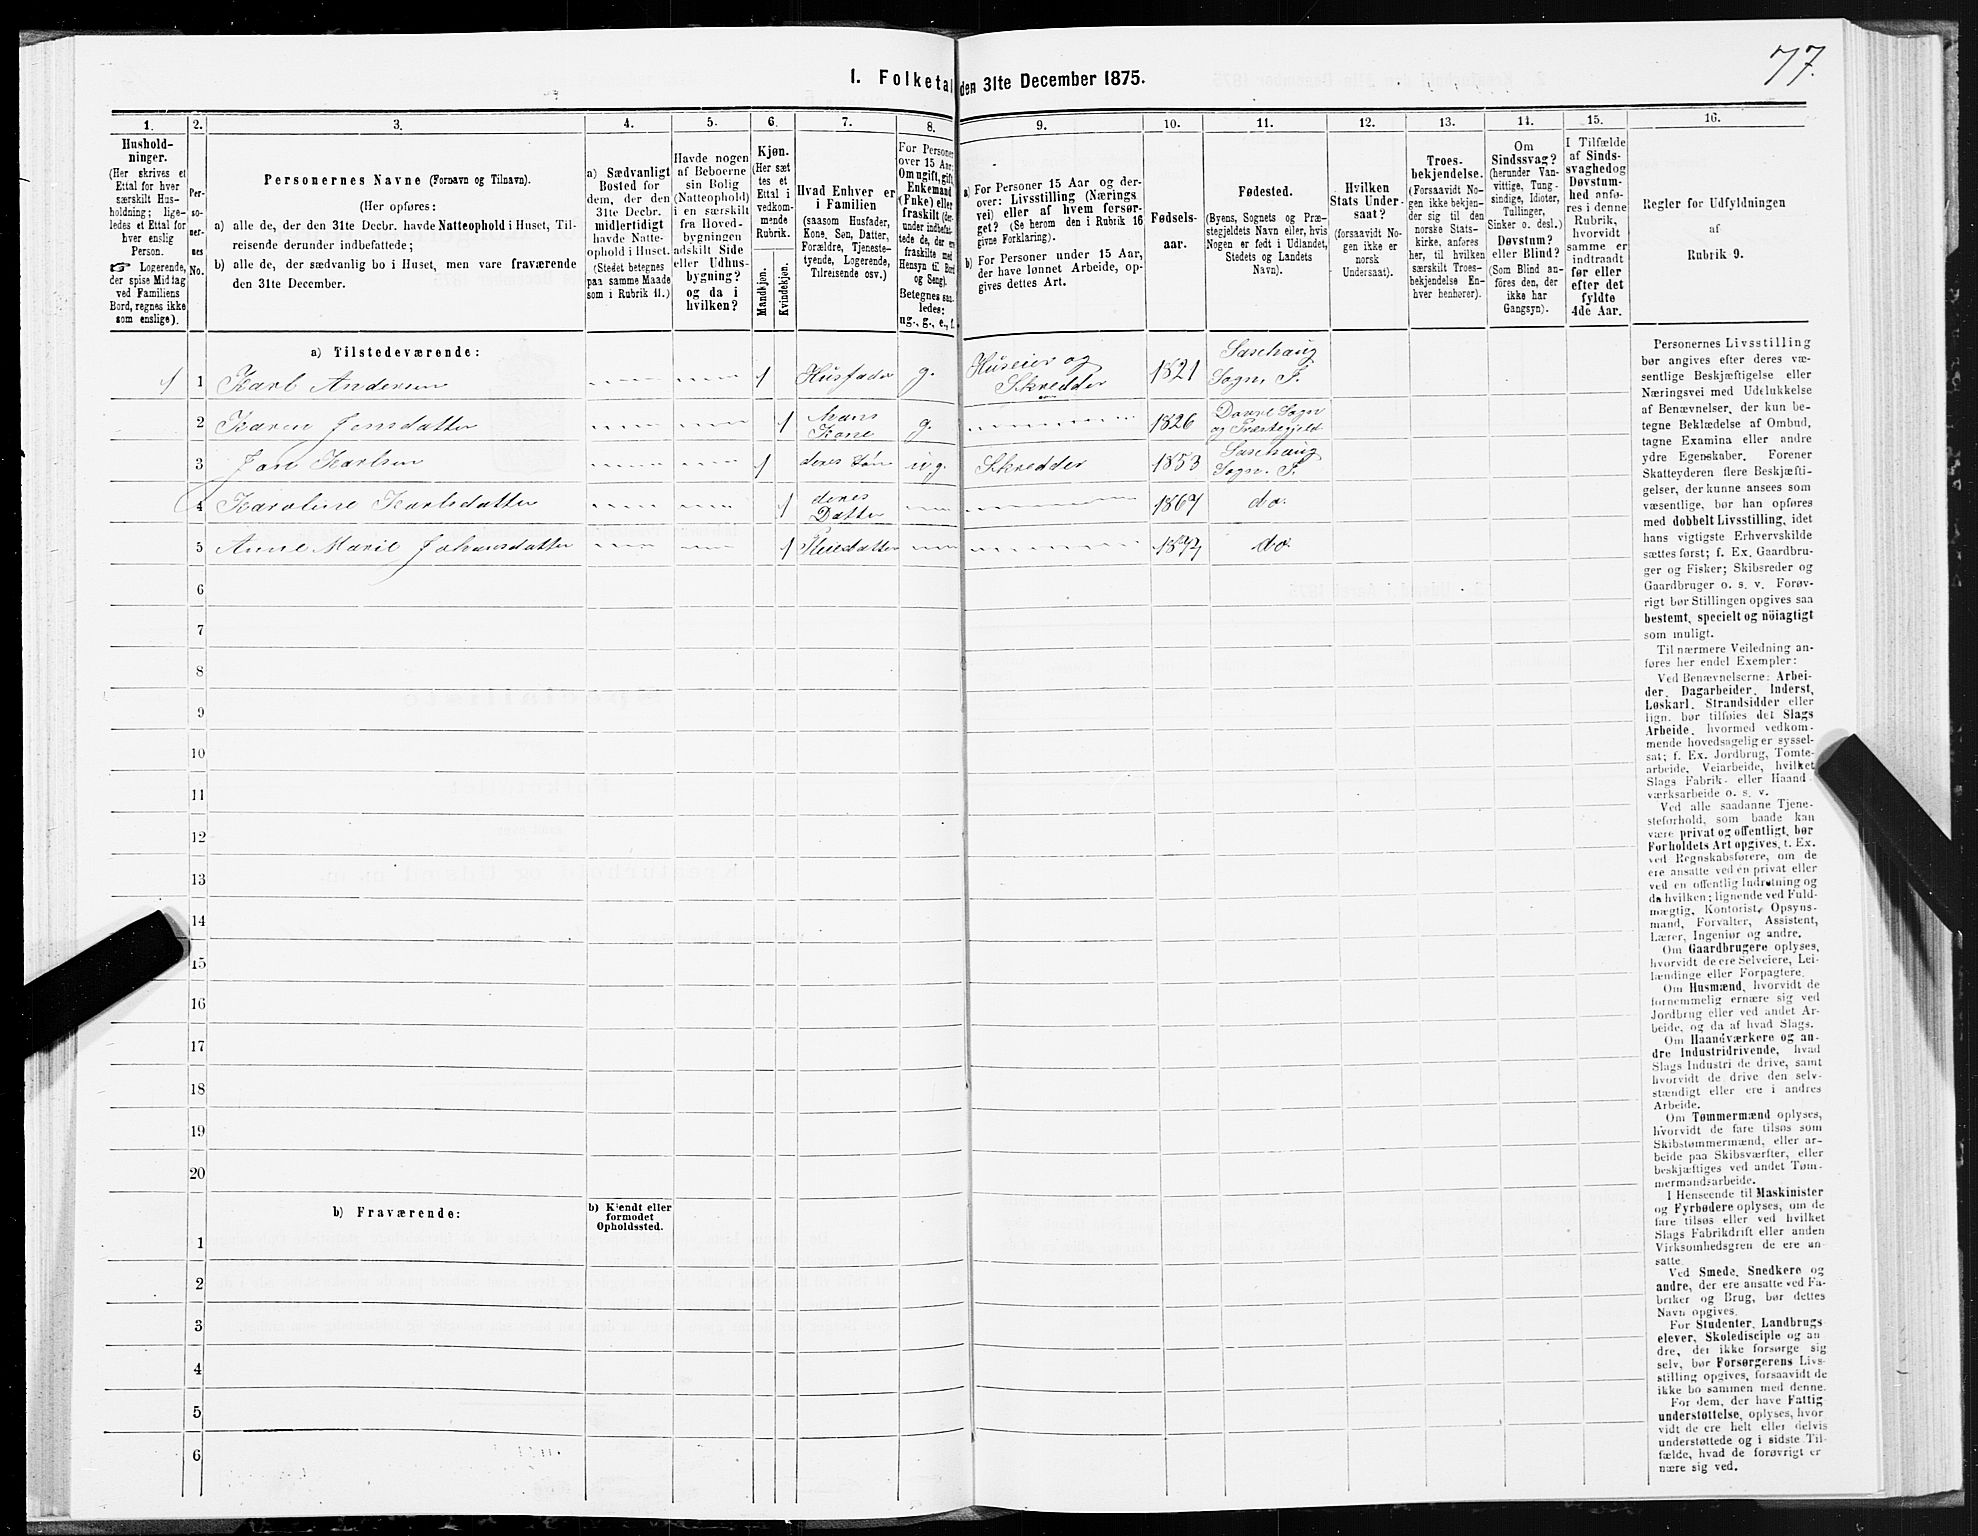 77.
1. Folketal den 31te December 1875.
1. 2. 3. 4. 5. 6. 7. 8. 9. 10. 11. 12. 13. 14. 15. 16.
Hushold-
ninger.
(Her skrives et
Ettal for hver
særskilt Hus-
holdning; lige-
ledes et Ettal for
hver enslig
Person.
☞ Logerende,
der spise Middag
ved Familiens
Bord, regnes ikke
som enslige).
Per-
so-
ner-
nes
No.
Personernes Navne (Fornavn og Tilnavn).
(Her opføres:
a) alle de, der den 31te Decbr. havde Natteophold i Huset, Til-
reisende derunder indbefattede;
b) alle de, der sædvanlig bo i Huset, men vare fraværende
den 31te December.
a) Sædvanligt
Bosted for
dem, der den
31te Decbr.
midlertidigt
havde Natte-
ophold i Huset.
(Stedet betegnes
paa samme Maade
som i Rubrik 11.)
Havde nogen
af Beboerne
sin Bolig
(Natteophold)
i en særskilt
fra Hoved-
bygningen
adskilt Side
eller Udhus-
bygning?
og da i
hvilken?
Kjøn.
(Her sæt
tes et
Ettal i
vedkom-
mende
Rubrik.
Mandkjøn.
Kvindekjøn.
Hvad Enhver er
i Familien
(saasom Husfader,
Kone, Søn, Datter,
Forældre, Tjeneste-
tyende, Logerende,
Tilreisende osv.)
For Personer
over 15 Aar:
Om ugift, gift,
Enkemand
(Enke) eller
fraskilt (der-
under indbefat-
tede de, der ere
fraskilte med
Hensyn til Bord
og Seng).
Betegnes saa-
ledes:
ug., g., e., f.
a) For Personer 15 Aar og der-
over: Livsstilling (Nærings
vei) eller af hvem forsør-
get? (Se herom den i Rubrik 16
givne Forklaring).
b) For Personer under 15 Aar,
der have lønnet Arbeide, op-
gives dettes Art.
Fødsels-
aar.
Fødested.
(Byens, Sognets og Præ-
stegjeldets Navn eller, hvis
Nogen er født i Udlandet,
Stedets og Landets
Navn).
Hvilken
Stats Under-
saat?
(forsaavidt No-
gen ikke er
norsk
Undersaat).
Troes-
bekjendelse.
(Forsaavidt No-
gen ikke bekjen-
der sig til den
norske Stats-
kirke, anføres
her, til hvilken
særskilt Troes-
bekjendelse En-
hver henhører).
Om
Sindssvag?
(herunder Van-
vittige, Tung-
sindige, Idioter,
Tullinger,
Sinker o. desl.)
Døvstum?
eller Blind?
(Som Blind an-
føres den, der
ikke har
Gangsyn).
I Tilfælde
af Sinds-
svaghed og
Døvstum-
hed anfø-
res i denne
Rubrik,
hvorvidt
samme er
indtraadt
før eller
efter det
fyldte
4de Aar.
Regler for Udfyldningen
af
Rubrik 9.
a) Tilstedeværende:
1 1 Karl Andersen 1 Husfader g. Huseier og Skrædder 1821 Sasehaug Sogn. T.
2 Karen Jensdatter 1 hans Kone g. 1826 Dovre Sogn og Præstegjeld
3 Jon Karlsen 1 deres Søn ug. Skrædder 1853 Sasehaug Sogn. T.
4 Karoline Karlsdatter 1 deres Datter 1867 do.
5 Anne Marie Johansdatter 1 Pleiedatter do
6
7
8
9
10
11
12
13
14
15
16
17
18
19
20
b) Fraværende:
b) Kjendt eller
formodet
Opholdssted.
1
2
3
4
5
6
Personernes Livsstilling
bør angives efter deres væ-
sentlige Beskjæftigelse eller
Næringsvei med Udelukkelse
af Benævnelser, der kun be-
tegne Beklædelse af Ombud,
tagne Examina eller andre
ydre Egenskaber. Forener
Skatteyderen flere Beskjæfti-
gelser, der kunne ansees som
væsentlige, bør han opføres
med dobbelt Livsstilling, idet
hans vigtigste Erhvervskilde
sættes først; f. Ex. Gaardbru-
ger og Fisker; Skibsreder og
Gaardbruger o. s. v. Forøv-
rigt bør Stillingen opgives saa
bestemt, specielt og nöiagtigt
som muligt.
Til nærmere Veiledning an-
føres her endel Exempler:
Ved Benævnelserne: Arbei-
der, Dagarbeider, Inderst,
Løskarl, Strandsidder eller
lign. bør tilføies det Slags
Arbeide, hvormed vedkom-
mende hovedsagelig er syssel-
sat; f. Ex. Jordbrug, Tomte-
arbeide, Veiarbeide, hvilket
Slags Fabrik- eller Haand-
værksarbeide o. s. v.
Ved alle saadanne Tjene-
steforhold, som baade kan
være privat og offentligt, bør
Forholdets Art opgives, f. Ex.
ved Regnskabsførere, om de
ere ansatte ved en privat eller
ved en offentlig Indretning og
da hvilken; lignende ved Fuld-
mægtig, Kontorist, Opsyns-
mand, Forvalter, Assistent,
Lærer, Ingeniør og andre.
Om Gaardbrugere oplyses,
hvorvidt de ere Selveiere, Lei-
lændinge eller Forpagtere.
Om Husmænd, hvorvidt de
fornemmelig ernære sig ved
Jordbrug eller ved andet Ar-
beide, og da af hvad Slags.
Om Haandværkere og an-
dre Industridrivende, hvad
Slags Industri de drive, samt
hvorvidt de drive den selv-
stændigt eller ere i andres
Arbeide.
Om Tømmermænd oplyses,
hvorvidt de fare tilsøs som
Skibstømmermænd, eller ar-
beide paa Skibsværfter, eller
beskjæftiges ved andet Tøm-
mermandsarbeide.
I Henseende til Maskinister
og Fyrbødere oplyses, om de
fare tilsøs eller ved hvilket
Slags Fabrikdrift eller anden
Virksomhedsgren de ere an-
satte.
Ved Smede, Snedkere og
andre, der ere ansatte ved Fa-
briker og Brug, bør dettes
Navn opgives.
For Studenter, Landbrugs-
elever, Skoledisciple og an
dre, der ikke forsørge sig
selv, bør Forsørgerens Livs-
stilling opgives, forsaavidt de
ikke bo sammen med denne.
For dem, der have Fattig
understøttelse, oplyses, hvor
vidt de ere helt eller delvis
understøttede og i sidste Til-
fælde, hvad de forøvrigt er
nære sig ved.